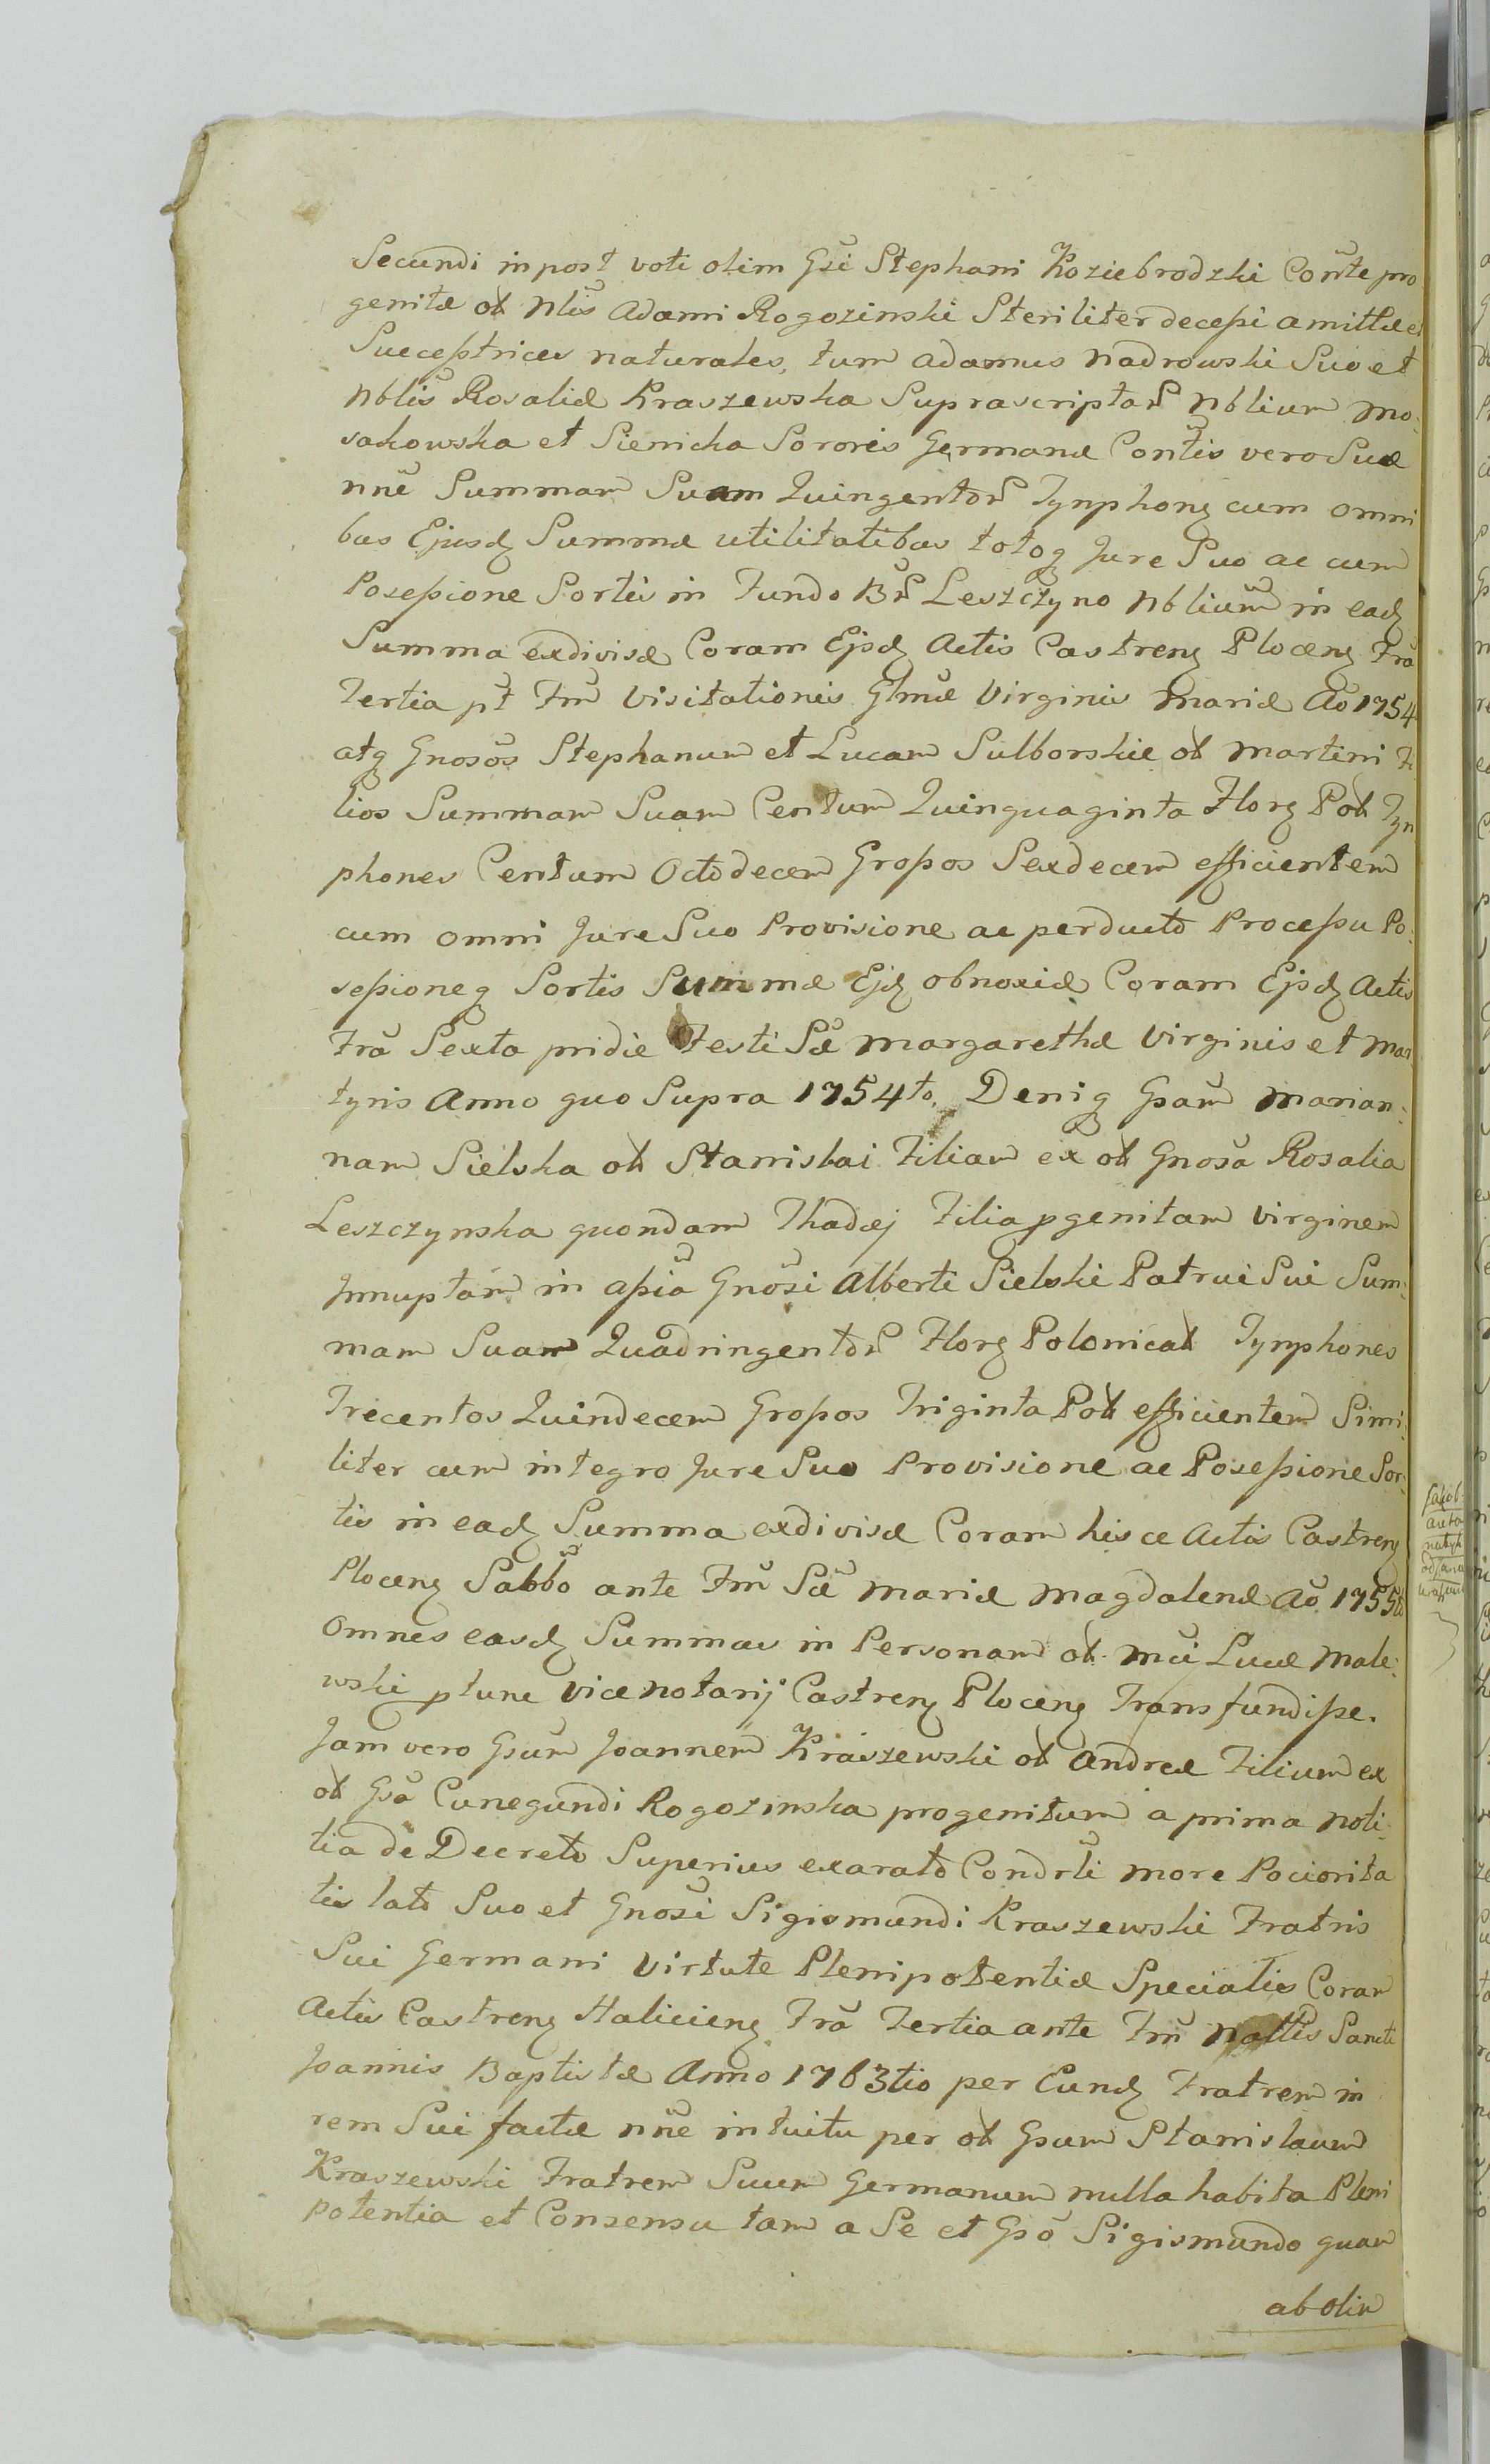 Secundi in post voti olim Gsi Stephani Koziebrodzki Conte pro
genitæ ol Nlis Adami Rogozinski Steriliter decessi amittæ et
Sucesstrices naturales, tum Adamus Nadrowski Suo et
Nblis Rosaliæ Kraszewska Suprascriptar Nblium Mo:
sakowska et Sienicka Sororis Germanæ Contis vero Suæ
nne Summam Suam Quingentor Tynphong cum omni
bus Ejusdq Summæ utilitatibus totoq Jure Suo ac cum
Possessione Sortis in Fundo Br Leszczyno Nblium in eadq
Summa exdivisæ Coram Ejsdq Actis Castreng Ploceng Fra
Tertia pt Fm Visitationis Glmæ Virginis Mariæ Ao 1754
atq Gnosos Stephanum et Lucam Sulborskie ol Martini Fi
lios Summam Suam Centum Quinquaginta Florg Pol Tyn
phones Centum Octodecem Grossos Sexdecem efficientem
cum omni Jure Suo Provisione ac perducto Processu Po:
sessioneq Sortis Summæ Ejdq obnoxiæ Coram Ejsdq Actis
Fra Sexta pridie Festi Sæ Margarethæ Virginis et Mar
tyris Anno quo Supra 1754to. Deniq Gsam Marian:
nam Sielska ol Stanislai Filiam ex ol Gnosa Rosalia
Leszczynska quondam Thadæj Filia pgenitam Virginem
Jnnuptam in assia Gnosi Alberti Sielski Patrui Sui Sum:
mam Suam Quadringentor Florg Polonical Tynphones
Trecentos Quindecem Grossos Triginta Pol efficientem Simi:
liter cum integro Jure Suo Provisione ac Possessione Sor:
tis in eadq Summa exdivisæ Coram hisce Actis Castreng
Ploceng Sabbo ante Fm Sæ Mariæ Magdalenæ Ao 1755to
Omnes easdq Summas in Personam ol Mci Lucæ Male:
wski ptunc Vice Notarij Castreng Ploceng Transfundisse.
Jam vero Gsum Joannem Kraszewski ol Andreæ Filium ex
ol Gsa Cunegundi Rogozinska progenitum a prima noti:
tia de Decreto Superius exarato Condrli more Pociorita
tis lato Suo et Gnosi Sigismundi Kraszewski Fratris
Sui Germani Virtute Plenipotentiæ Specialis Coram
Actis Castreng Halicieng Fra Tertia ante Fm Natlis Sancti
Joannis Baptistæ Anno 1763tio per Eundq Fratrem in
rem Sui factæ nne intuitu per ol Gsum Stanislaum
Kraszewski Fratrem Suum Germanum nulla habita Pleni
potentia et Consensu tam a Se et Gso Sigismundo quam
ab olim